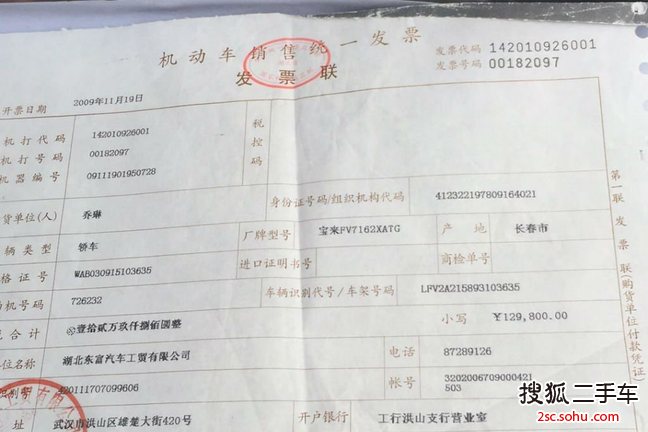 机动车销售统一发票
发票联
发票代码 142010926001
发票号码 00182097
开票日期 2009年11月19日
机打代码 142010926001
机打号码 00182097
机器编号 09111901950728
税控码
货单位(人) 乔琳 身份证号码/组织机构代码 412322197809164021
辆类型 轿车 厂牌型号 宝来FV7162XATG 产地 长春市
格证号 WAB030915103635 进口证明书号 商检单号
机号码 726232 车辆识别代号/车架号码 LFV2A215893103635
合计 ⊗壹拾贰万玖仟捌佰圆整 小写 ¥129,800.00
单位名称 湖北东富汽车工贸有限公司 电话 87289126
识别号 420111707099606 帐号 3202006709000421503
址 武汉市洪山区雄楚大街420号 开户银行 工行洪山支行营业室
第一联 发票联(购货单位付款凭证)
搜狐二手车
2sc.sohu.com